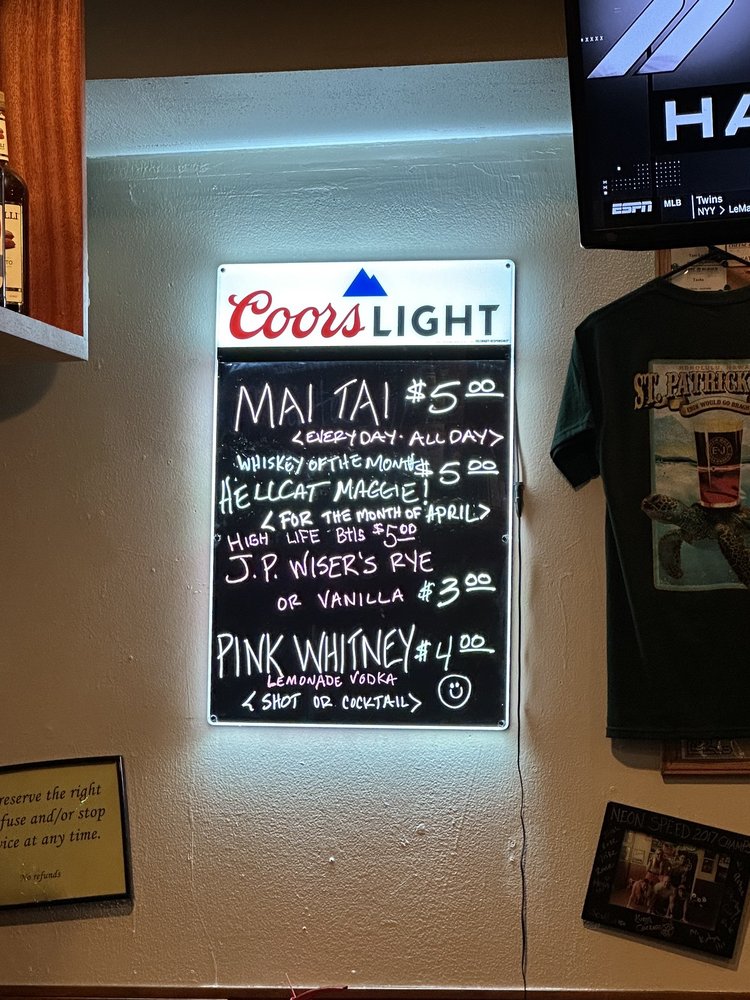 Coors LIGHT
MAI TAI $5.00
<EVERYDAY· ALL DAY>
WHISKEY OF THE MONTH $5.00
HELLCAT MAGGIE!
<FOR THE MONTH OF APRIL>
HIGH LIFE Btls $5.00
J.P. WISER'S RYE
OR VANILLA $3.00
PINK WHITNEY $4.00
LEMONADE VODKA
<SHOT OR COCKTAIL>
HA
ESPN MLB Twins
NYY > LeMa
HONOLULU
ST. PATRICK
ERIN WOULD GO BRAG
E&J
reserve the right
fuse and/or stop
vice at any time.
No refunds
NEON SPEED 2017 CHAMP